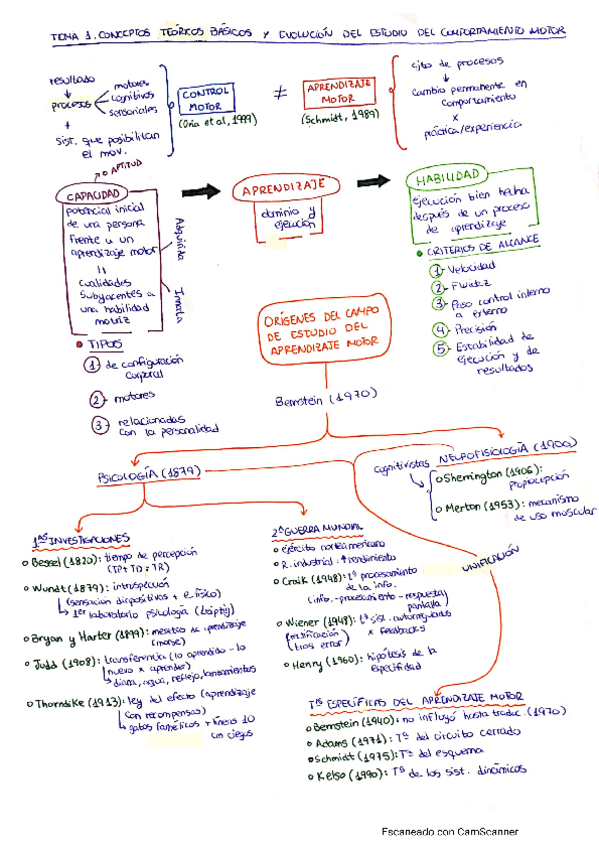 TEMA 1. CONCEPTOS TEÓRICOS BÁSICOS Y EVOLUCIÓN DEL ESTUDIO DEL COMPORTAMIENTO MOTOR
resultado
procesos
motores
cognitivos
sensoriales
+
sist. que posibilitan
el mov.
CONTROL
MOTOR
(Oña et al, 1999)
≠
APRENDIZAJE
MOTOR
(Schmidt, 1989)
cjto de procesos
cambio permanente en
comportamiento
x
práctica/experiencia
o APTITUD
CAPACIDAD
potencial inicial
de una persona
frente a un
aprendizaje motor
=
cualidades
subyacentes a
una habilidad
motriz
Adquirida
Innata
TIPOS
1 de configuración
corporal
2 motores
3 relacionadas
con la personalidad
APRENDIZAJE
dominio y
ejecución
HABILIDAD
ejecución bien hecha
después de un proceso
de aprendizaje
CRITERIOS DE ALCANCE
1 - Velocidad
2 - Fluidez
3 - Paso control interno
a externo
4 - Precisión
5 - Estabilidad de
ejecución y de
resultados
ORÍGENES DEL CAMPO
DE ESTUDIO DEL
APRENDIZAJE MOTOR
Bernstein (1970)
PSICOLOGÍA (1879)
NEUROFISIOLOGÍA (1900)
cognitivistas
Sherrington (1906):
propiocepción
Merton (1953): mecanismo
de uso muscular
UNIFICACIÓN
1as INVESTIGACIONES
Bessel (1820): tiempo de percepción
(TP + TD = TR)
Wundt (1879): introspección
(sensación diapositivas + e. físico)
1er laboratorio psicología (Leipzig)
Bryan y Harter (1899): mesetas de aprendizaje
(morse)
Judd (1908): transferencia (lo aprendido - lo
nuevo x aprender)
diana, agua, reflejo, lanzamientos
Thorndike (1913): ley del efecto (aprendizaje
con recompensas)
gatos famélicos + línea 10
cm ciegos
2ª GUERRA MUNDIAL
ejército norteamericano
R. industrial: ↑ rendimiento
Craik (1948): tª procesamiento
de la info.
(info. - procesamiento - respuesta)
pantalla
Wiener (1948): tª sist. autorregulados
x feedbacks
Henry (1960): hipótesis de la
especifidad
Tas ESPECÍFICAS DEL APRENDIZAJE MOTOR
Bernstein (1940): no influyó hasta traduc. (1970)
Adams (1971): Tª del circuito cerrado
Schmidt (1975): Tª del esquema
Kelso (1990): Tª de los sist. dinámicos
Escaneado con CamScanner